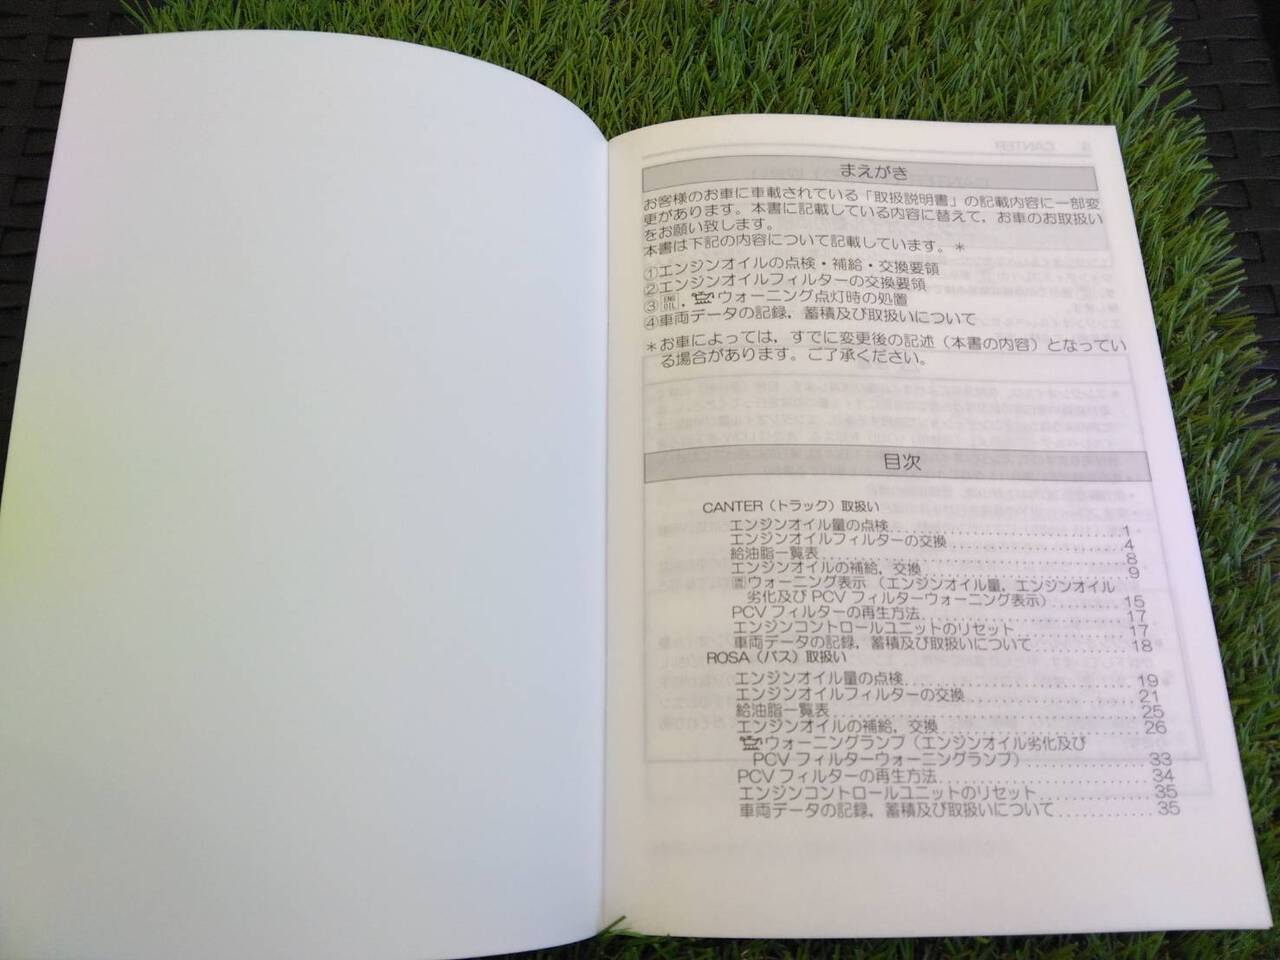 まえがき
お客様のお車に車載されている「取扱説明書」の記載内容に一部変
更があります。本書に記載している内容に替えて，お車のお取扱い
をお願い致します。
本書は下記の内容について記載しています。＊
①エンジンオイルの点検・補給・交換要領
②エンジンオイルフィルターの交換要領
③ENG OIL，ウォーニング点灯時の処置
④車両データの記録，蓄積及び取扱いについて
＊お車によっては，すでに変更後の記述（本書の内容）となってい
る場合があります。ご了承ください。
目次
CANTER（トラック）取扱い
エンジンオイル量の点検 1
エンジンオイルフィルターの交換 4
給油脂一覧表 8
エンジンオイルの補給，交換 9
ウォーニング表示（エンジンオイル量，エンジンオイル
劣化及び PCV フィルターウォーニング表示） 15
PCV フィルターの再生方法 17
エンジンコントロールユニットのリセット 17
車両データの記録，蓄積及び取扱いについて 18
ROSA（バス）取扱い
エンジンオイル量の点検 19
エンジンオイルフィルターの交換 21
給油脂一覧表 25
エンジンオイルの補給，交換 26
ウォーニングランプ（エンジンオイル劣化及び
PCV フィルターウォーニングランプ） 33
PCV フィルターの再生方法 34
エンジンコントロールユニットのリセット 35
車両データの記録，蓄積及び取扱いについて 35